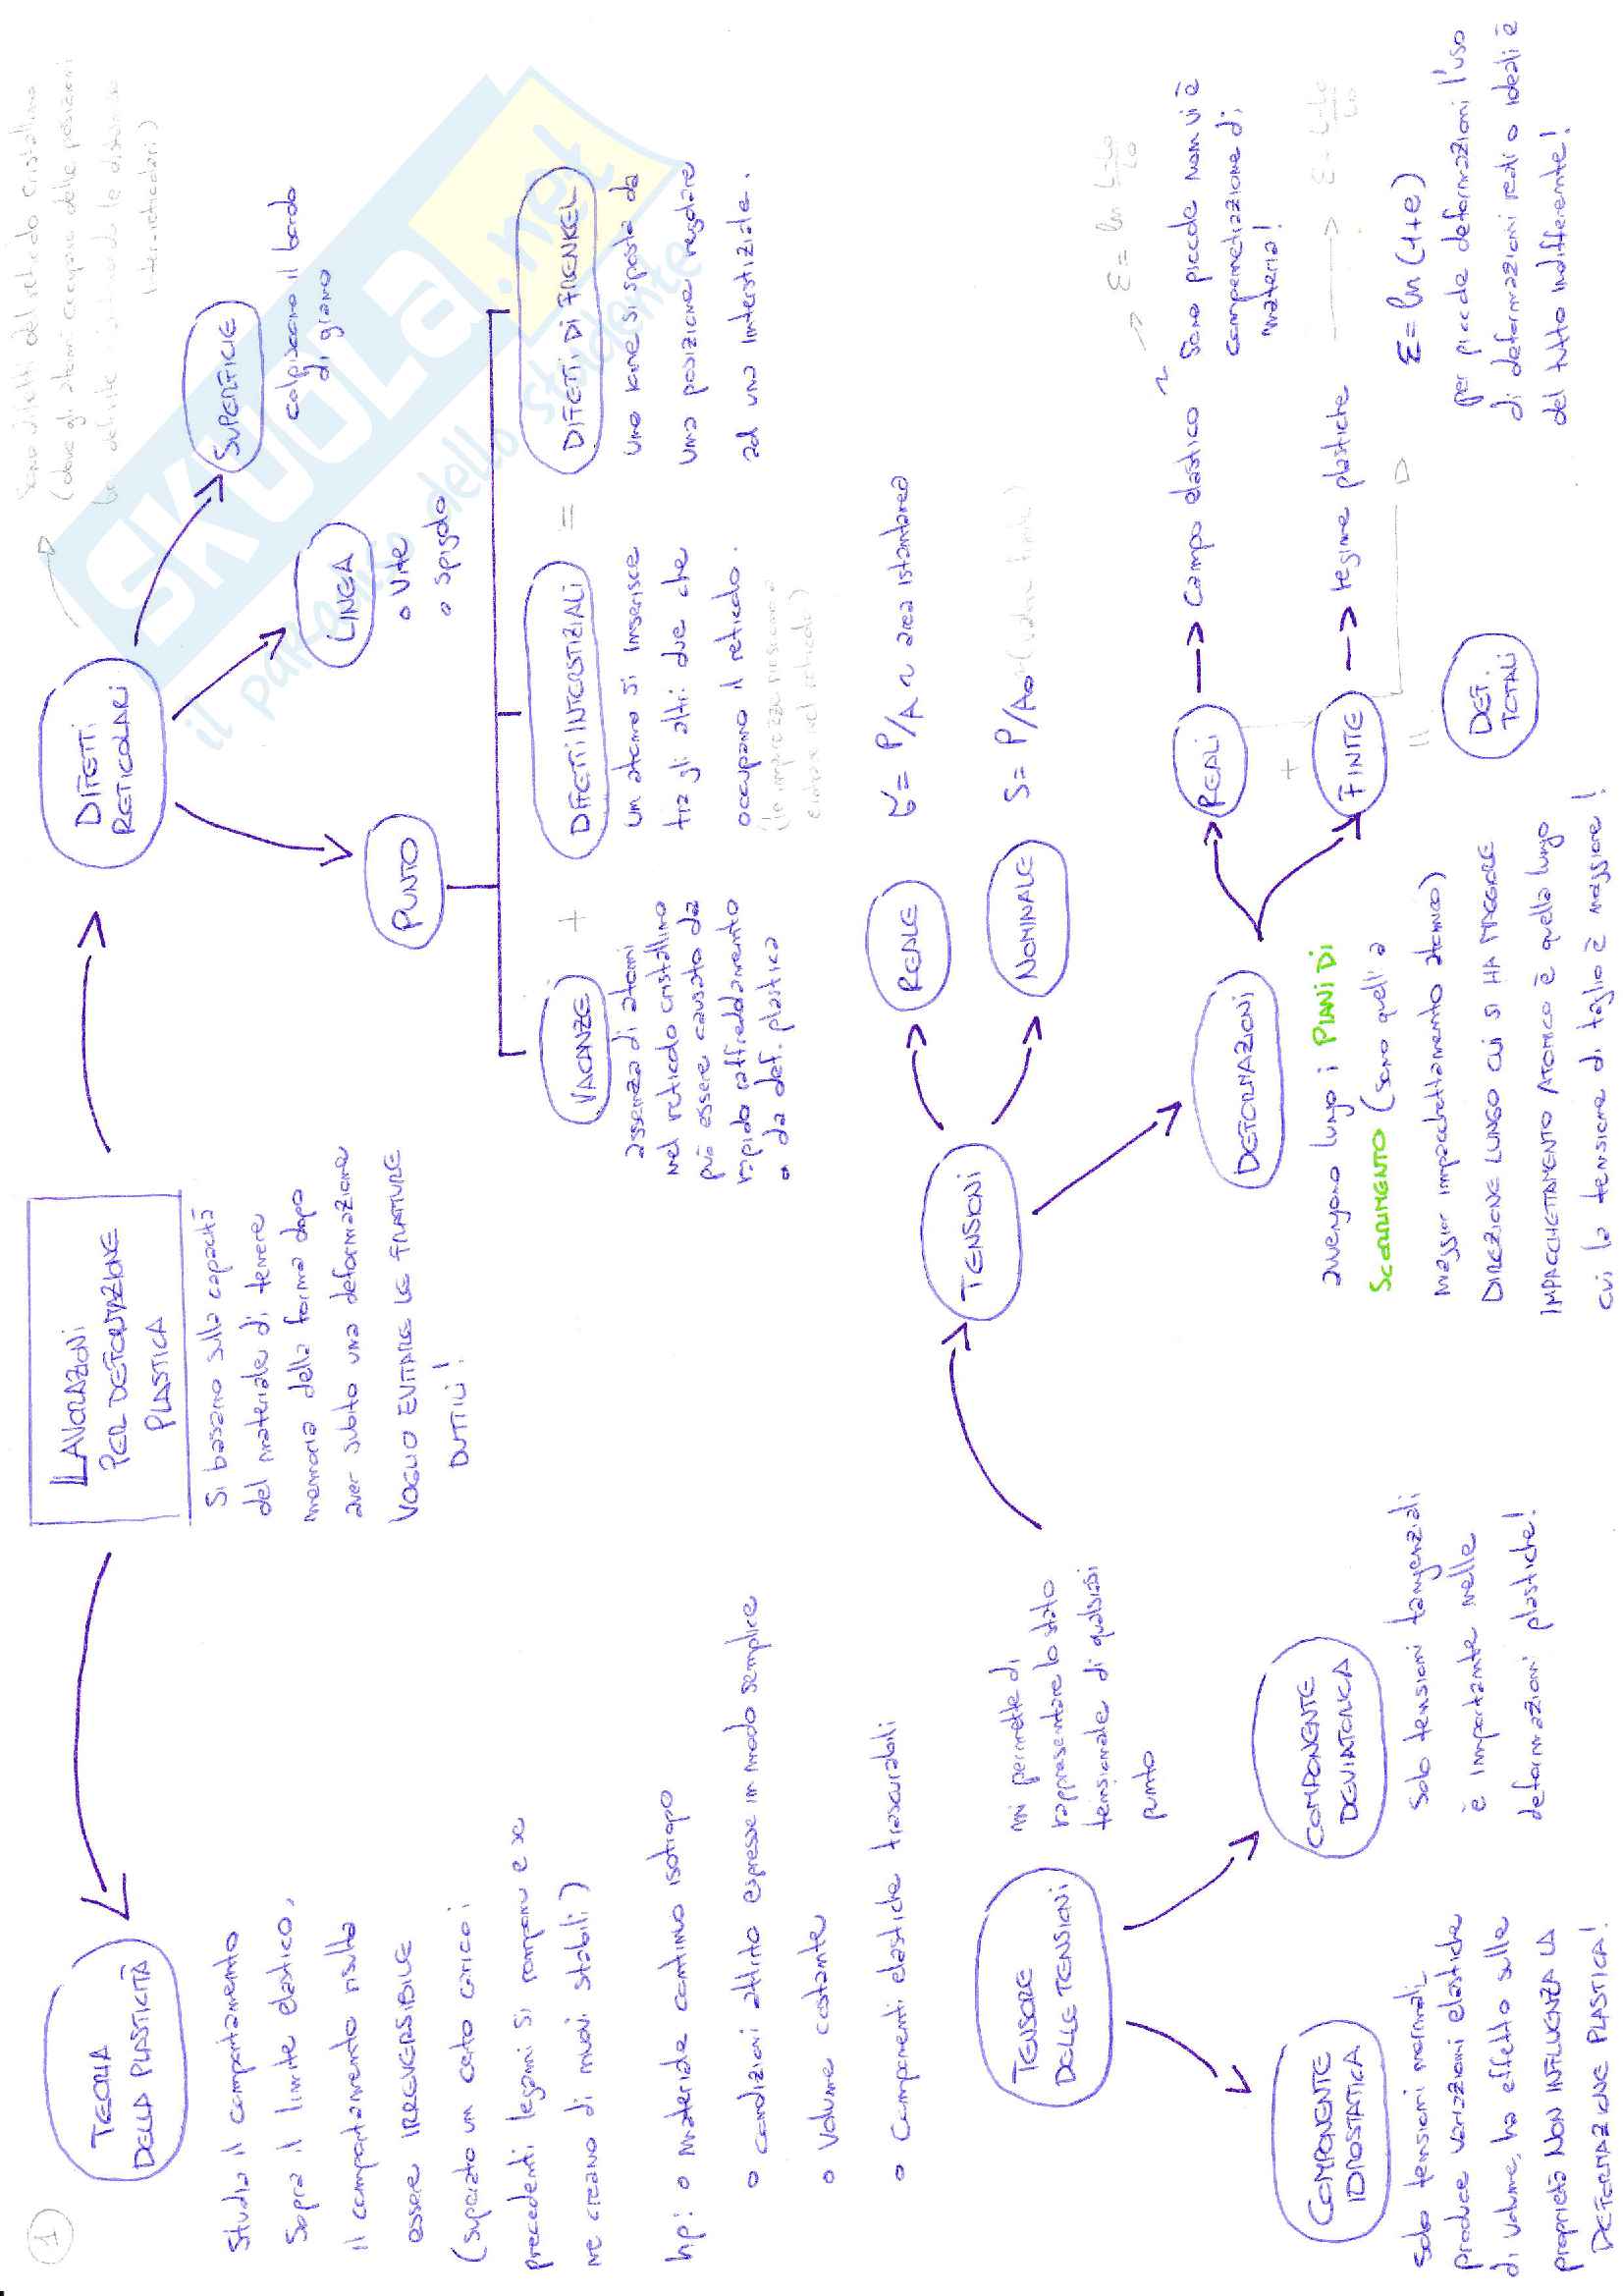 1
LAVORAZIONI
PER DEFORMAZIONE
PLASTICA
Si basano sulla capacità
del materiale di tenere
memoria della forma dopo
aver subito una deformazione
VOGLIO EVITARE LE FRATTURE
DUTTILI!
TEORIA
DELLA PLASTICITÀ
Studia il comportamento
sopra il limite elastico,
il comportamento risulta
essere IRREVERSIBILE
(superato un certo carico i
precedenti legami si rompono e se
ne creano di nuovi stabili)
hp: o materiale continuo isotropo
o condizioni attrito espresse in modo semplice
o Volume costante
o Componenti elastiche trascurabili
DIFETTI
RETICOLARI
Sono difetti del reticolo cristallino
(dove gli atomi occupano delle posizioni
ben definite le distanze
interreticolari)
PUNTO
LINEA
o Vite
o spigolo
SUPERFICIE
colpiscono il bordo
di grano
VACANZE
assenza di atomi
nel reticolo cristallino
può essere causato da
rapido raffreddamento
o da def. plastica
+
DIFETTI INTERSTIZIALI
un atomo si inserisce
tra gli altri due che
occupano il reticolo.
(le impurezze riescono a
entrare nel reticolo)
=
DIFETTI DI FRENKEL
uno ione si sposta da
una posizione regolare
ad una interstiziale.
TENSORE
DELLE TENSIONI
mi permette di
rappresentare lo stato
tensionale di qualsiasi
punto
COMPONENTE
IDROSTATICA
Solo tensioni normali,
produce variazioni elastiche
di volume, ha effetto sulle
proprietà NON INFLUENZA LA
DEFORMAZIONE PLASTICA!
COMPONENTE
DEVIATORICA
Solo tensioni tangenziali
è importante nelle
deformazioni plastiche!
TENSIONI
REALE
σ = P/A ~ area istantanea
NOMINALE
S = P/A0
DEFORMAZIONI
avvengono lungo i PIANI DI
SCORRIMENTO (sono quelli a
maggior impacchettamento atomico)
DIREZIONE LUNGO CUI SI HA MAGGIORE
IMPACCHETTAMENTO ATOMICO È quella lungo
cui la tensione di taglio è maggiore!
REALI → Campo elastico ~ Sono piccole non vi è
compenetrazione di
materia!
ε = ln L-L0/L0
+
FINITE → regime plastiche → ε = L-L0/L0
=
DEF.
TOTALI
ε = ln(1+e)
per piccole deformazioni l'uso
di deformazioni reali o ideali è
del tutto indifferente!
SKUOLA.net
il paradiso dello studente